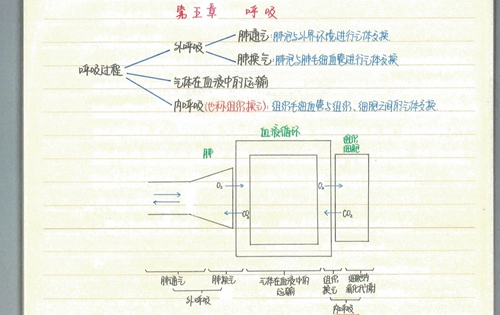 第五章 呼吸
肺通气:肺泡与外界环境进行气体交换
外呼吸
肺换气:肺泡与肺毛细血管进行气体交换
呼吸过程
气体在血液中的运输
内呼吸(也称组织换气):组织毛细血管与组织、细胞之间的气体交换
血液循环
组织
细胞
肺
O₂
O₂
CO₂
CO₂
肺通气
肺换气
气体在血液中的
运输
组织
换气
细胞内
氧化代谢
外呼吸
内呼吸